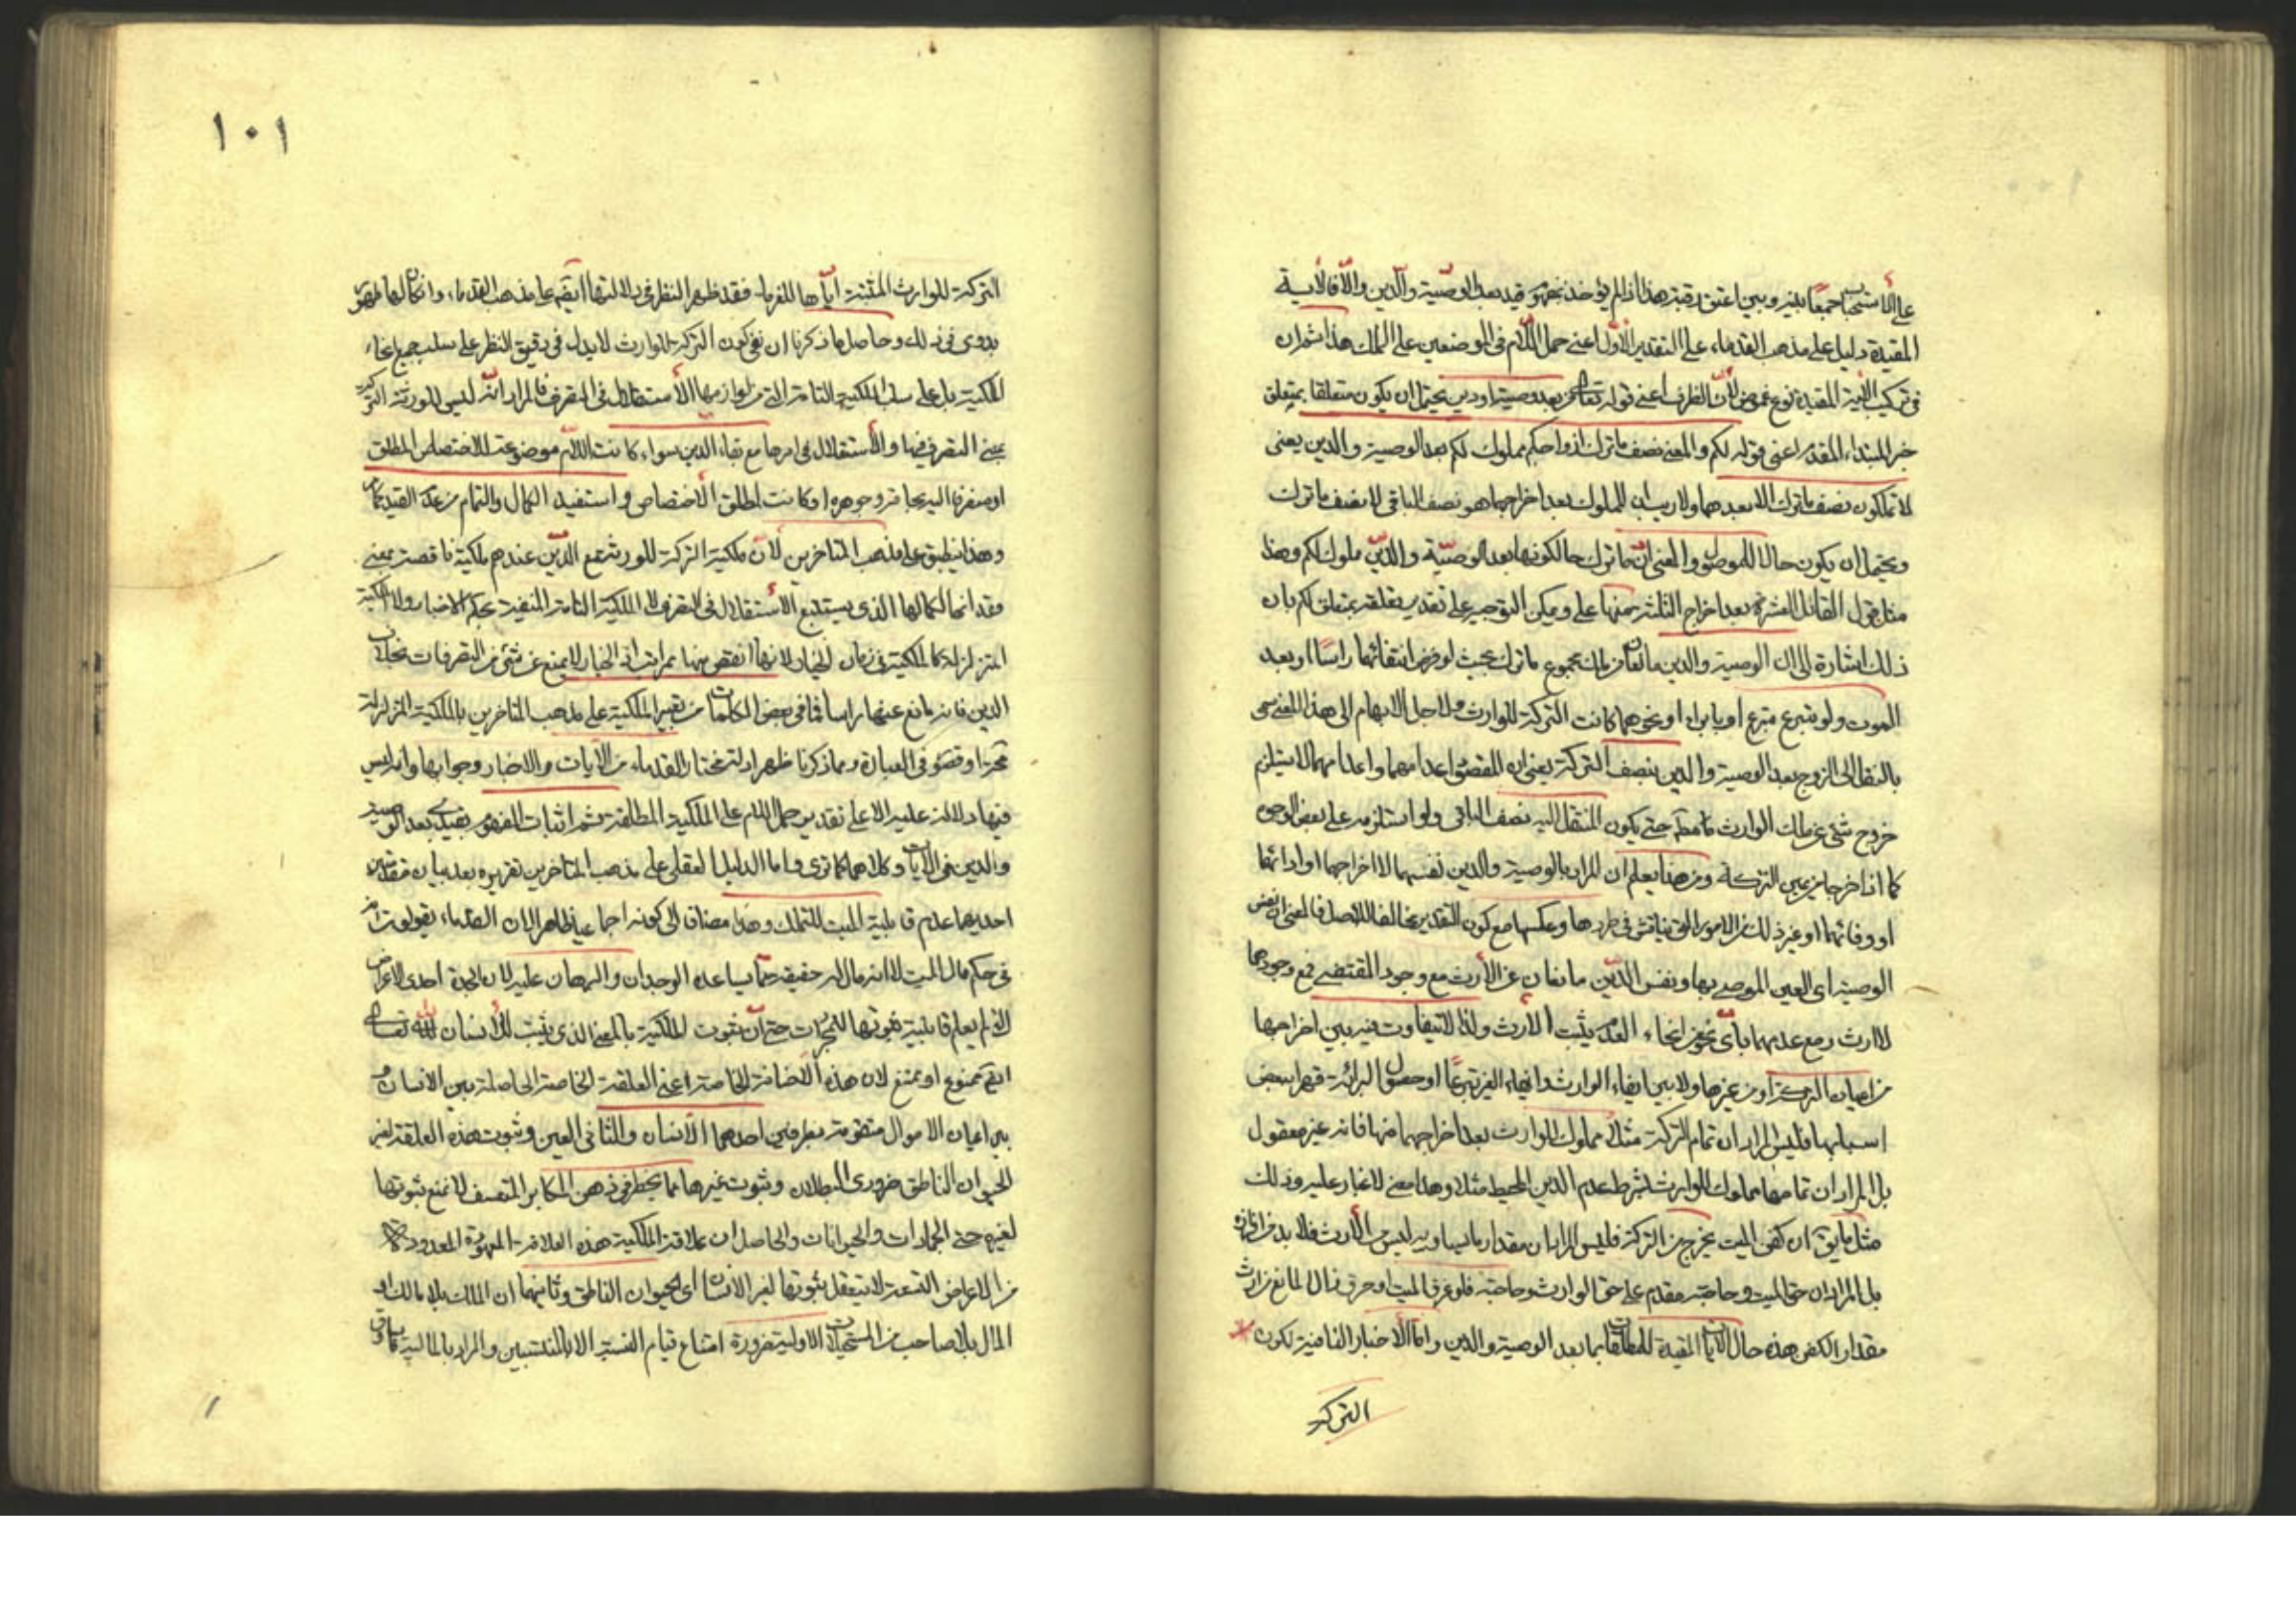 على الاستحباب جمعا بينه وبين اعتق رقبة هذا اذا لم يؤخذ بمفهوم قيد بعد الوصية والدين والا فالآية
المقيدة دليل على مذهب القدماء على التقدير الاول اعنى حمل اللام فى الموضعين على الملك هذا ثم ان
فى تركيب الآية المقيدة نوع غموض لان الظرف اعنى قوله تعالى من بعد وصية او دين يحتمل ان يكون متعلقا بمتعلق
خبر المبتداء المقدر اعنى قوله لكم والمعنى نصف ما ترك ازواجكم مملوك لكم بعد الوصية والدين يعنى
لا تملكون نصف ما ترك الا بعدهما ولا ريب ان المملوك بعد اخراجهما هو نصف الباقى لا نصف ما ترك
ويحتمل ان يكون حالا للموصول والمعنى ان ما ترك حالكونها بعد الوصية والدين مملوك لكم وهذا
مثل قول القائل العشرة بعد اخراج الثلثة منها على ويمكن التوجيه على تقدير تعلقه بمتعلق لكم بان
ذلك اشارة الى ان الوصية والدين مانعان من ملك مجموع ما ترك بحيث لو فرض انتفائهما راسا او بعد
الموت ولو بتبرع متبرع او بابراء او نحوهما كانت التركة للوارث ولاجل الابهام الى هذا المعنى سمى
بالنقل الى الزوج بعد الوصية والدين بنصف التركة يعنى ان المقصود اعدامهما واعدامهما لا يستلزم
خروج شئ عن ملك الوارث حتى يكون المنتقل اليه نصف الباقى ولو استلزمه على بعض الوجوه
كما اذا خرجا من عين التركة ومن هنا يعلم ان المراد بالوصية والدين نفسهما لا اخراجهما او ادائهما
او وفائهما او غير ذلك من الامور التى يناقش فى طردها وعكسها مع كون التقدير مخالفا للاصل فالمعنى ان نفس
الوصية اى العين الموصى بها ونفس الدين مانعان عن الارث مع وجود المقتضى فمع وجودهما
لا ارث ومع عدمهما باى نحو من انحاء العدم يثبت الارث ولذا لا تتفاوت فيه بين اخراجهما
من اعيان التركة او من غيرها ولا بين ايفاء الوارث وايفاء الغير تبرعا او حصول البرائة قهرا ببعض
اسبابها فليس المراد ان تمام التركة مثلا مملوك للوارث بعد اخراجهما منها فانه غير معقول
بل المراد ان تمامها مملوك للوارث بشرط عدم الدين المحيط مثلا وهذا معنى لا غبار عليه وذلك
مثل ما يق ان كفن الميت يخرج من التركة فليس المراد ان مقدار ما يساويه ليس الارث فلا بد من افرازه
بل المراد ان حق الميت وحاجته مقدم على حق الوارث وحاجته فلو غرق الميت او حرق زال المانع من ارث
مقدار الكفن هذه حال الآيات المقيدة للمطلقات بما بعد الوصية والدين واما الاخبار النافية لكون
التركة
١٠١
التركة للوارث المثبتة اياها للغرماء فقد ظهر النظر فى دلالتها ايضا على مذهب القدماء وان كان لها ظهور
بدوى فى ذلك وحاصل ما ذكرنا ان نفى كون التركة للوارث لا يدل فى دقيق النظر على سلب جميع انحاء
الملكية بل على سلب الملكية التامة التى من لوازمها الاستقلال فى التصرف فالمراد انه ليس للورثة التركة
بمعنى التصرف فيها والاستقلال فى امرها مع بقاء الدين سواء كانت اللام موضوعة للاختصاص المطلق
او منصرفا اليه مجاز وجوهره او كانت لمطلق الاختصاص واستفيد الكمال والتمام من عدم القيد
وهذا ينطبق على مذهب المتاخرين لان ملكية التركة للورثة مع الدين عندهم ملكية ناقصة بمعنى
فقدانها لكمالها الذى يستتبع الاستقلال فى التصرف لا الملكية التامة المنفية بحكم الاخبار ولا الملكية
المتزلزلة كالملكية فى زمان الخيار لانها انقص منها بمراتب اذ الخيار لا يمنع عن شئ من التصرفات بخلاف
الدين فانه مانع عنها راسا فما فى بعض الكلمات من تعبير الملكية على مذهب المتاخرين بالملكية المتزلزلة
تحرزا وقصور فى العبارة ومما ذكرنا ظهر ادلة مختار القدماء من الآيات والاخبار وجوابها وانه ليس
فيها دلالة عليه الا على تقدير حمل اللام على الملكية المطلقة ثم اثبات المفهوم بقيد بعد الوصية
والدين فى الآيات وكلاهما كما ترى واما الدليل العقلى على مذهب المتاخرين تقريره بعد بيان مقدمتين
احديهما عدم قابلية الميت للتملك وهذا مضافا الى كونه اجماعيا ظاهرا لان القدماء يقولون انه
فى حكم مال الميت لا انه مال له حقيقة مما يساعده الوجدان والبرهان عليه لان الجدة احدى الاعراض
التى لم يعلم قابلية ثبوتها للمجردات حتى ان ثبوت الملكية بالمعنى الذى يثبت للانسان لله تعالى
ايضا ممنوع او ممتنع لان هذه الاضافة الخاصة اعنى العلقة الخاصة الحاصلة بين الانسان و
بين اعيان الاموال متقومة بطرفين احدهما الانسان والثانى العين وثبوت هذه العلقة لغير
الحيوان الناطق ضرورى البطلان وثبوت غيرها مما يخطر فى ذهن المكابر المتعسف لا نمنع ثبوتها
لغيره حتى الجمادات والحيوانات والحاصل ان علاقة الملكية هذه العلاقة المعهودة المعدودة
من الاعراض التسعة لا يتعقل ثبوتها لغير الانسان اى الحيوان الناطق وثانيهما ان الملك بلا مالك او
المال بلا صاحب من المستحيلات الاولية ضرورة امتناع قيام النسبة الا بالمنتسبين والمراد بالمالية